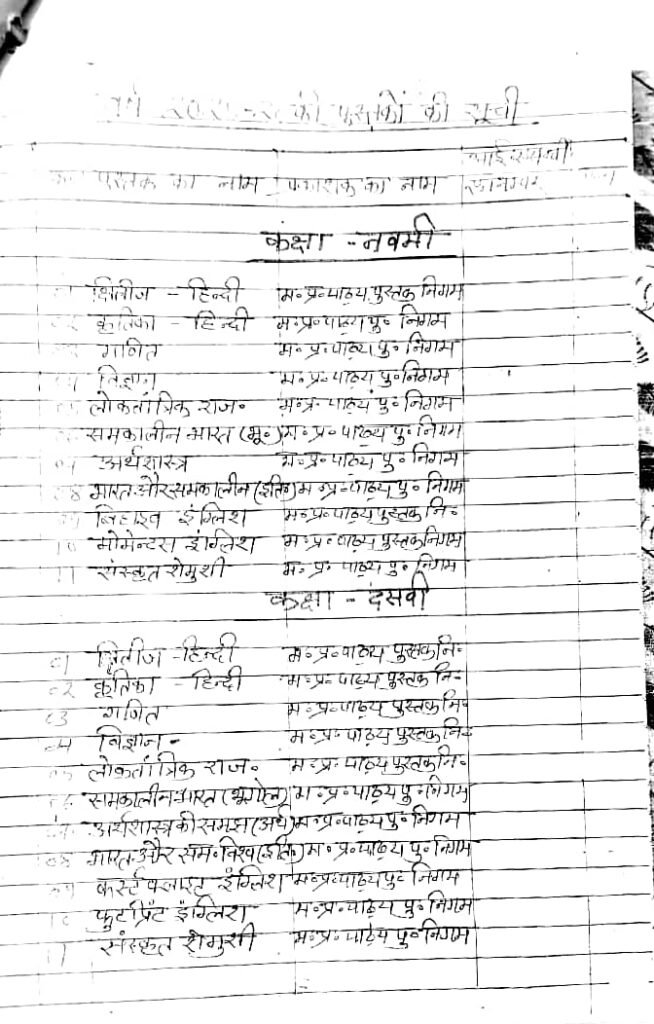 की पुस्तकों की सूची
पुस्तक का नाम प्रकाशक का नाम
कक्षा - नवमी
क्षितीज - हिन्दी म॰प्र॰पाठ्य पुस्तक निगम
कृतिका - हिन्दी म॰प्र॰पाठ्य पु॰ निगम
गणित म॰प्र॰पाठ्य पु॰ निगम
विज्ञान म॰प्र॰पाठ्य पु॰निगम
लोकतांत्रिक राज॰ म॰प्र॰ पाठ्य पु॰ निगम
समकालीन भारत (भू॰) म॰प्र॰पाठ्य पु॰ निगम
अर्थशास्त्र म॰प्र॰पाठ्य पु॰ निगम
08 भारत और समकालीन (इति॰) म॰प्र॰पाठ्य पु॰ निगम
इंग्लिश म॰प्र॰पाठ्य पुस्तक नि॰
10 मोमेन्टस इंग्लिश म॰प्र॰पाठ्य पुस्तकनिगम
11 संस्कृत शेमुशी म॰प्र॰ पाठ्य पु॰ निगम
कक्षा - दसवी
01 क्षितीज - हिन्दी म॰प्र॰पाठ्य पुस्तकनि॰
02 कृतिका - हिन्दी म॰प्र॰पाठ्य पुस्तक नि॰
03 गणित म॰प्र॰पाठ्य पुस्तकनि॰
04 विज्ञान - म॰प्र॰पाठ्य पुस्तक नि॰
05 लोकतांत्रिक राज॰ म॰प्र॰ पाठ्य पुस्तकनि॰
06 समकालीन भारत (भूगोल) म॰प्र॰पाठ्य पु॰ निगम
07 अर्थशास्त्र की समझ (अर्थ) म॰प्र॰पाठ्य पु॰ निगम
08 भारत और सम॰ विश्व (इति॰) म॰प्र॰पाठ्य पु॰ निगम
09 फर्स्ट फ्लाइट इंग्लिश म॰प्र॰पाठ्य पु॰ निगम
10 फुटप्रिंट इंग्लिश म॰प्र॰पाठ्य पु॰ निगम
11 संस्कृत शेमुशी म॰प्र॰पाठ्य पु॰निगम